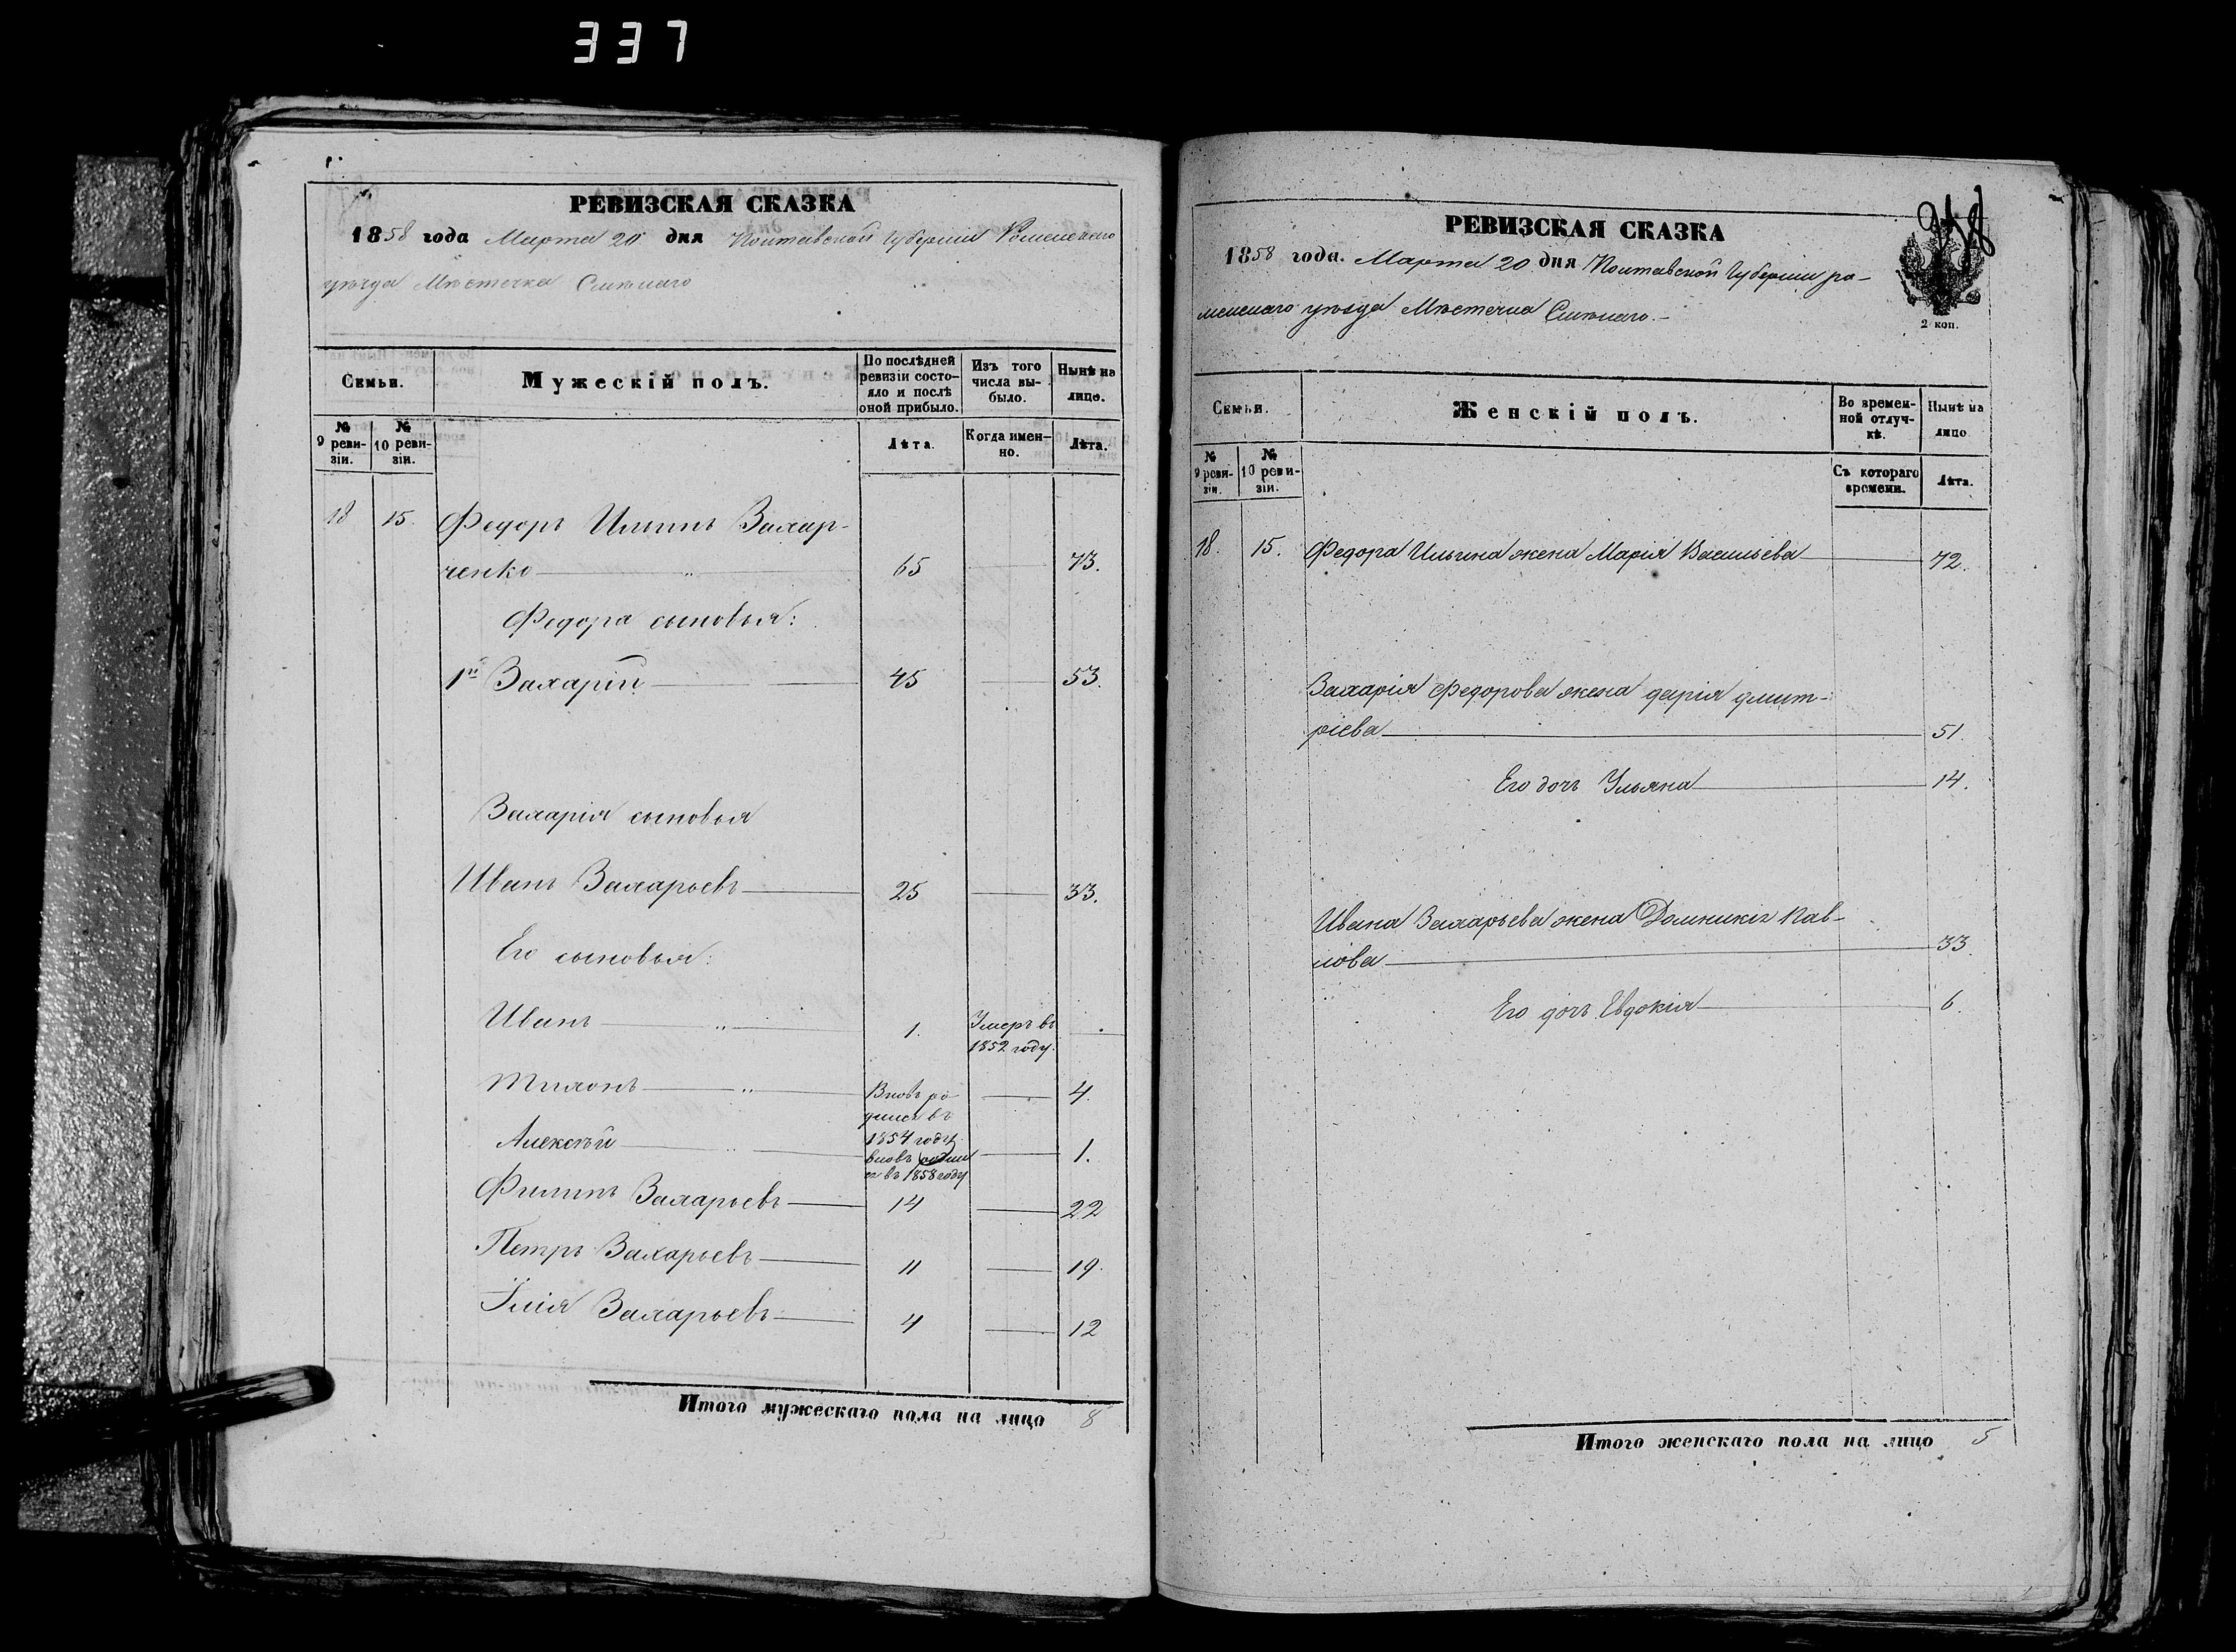 337
РЕВИЗСКАЯ СКАЗКА
1858 года Марта 20 дня Полтавской Губерніи Роменскаго
уѣзда Мѣстечка Смѣлаго
Семьи.
Мужескій полъ.
По послѣдней ревизіи состояло и послѣ оной прибыло.
Изъ того числа выбыло.
Нынѣ на лицо.
№ 9 ревизіи.
№ 10 ревизіи.
Лѣта.
Когда именно.
Лѣта.
18 15. Федоръ Ильинъ Захар-
ченко 65 73.
Федора сыновья:
1й Захарій 45 53.
Захарія сыновья
Иванъ Захарьевъ 25 33.
Его сыновья:
Иванъ 1. Умеръ въ 1852 году.
Тихонъ Вновь родился въ 1854 году 4.
Алексѣй вновь родился въ 1858 году 1.
Филипъ Захарьевъ 14 22
Петръ Захарьевъ 11 19.
Илія Захарьевъ 4 12
Итого мужескаго пола на лицо 8
РЕВИЗСКАЯ СКАЗКА
1858 года. Марта 20 дня Полтавской Губерніи ро-
менскаго уѣзда Мѣстечка Смѣлаго.-
2 коп.
Семьи.
Женскій полъ.
Во временной отлучкѣ.
Нынѣ на лицо
№ 9 ревизіи.
№ 10 ревизіи.
Съ котораго времени.
Лѣта.
18. 15. Федора Ильина жена Марія Васильева 72.
Захарія Федорова жена дарія дмит-
ріева 51.
Его дочь Ульяна 14.
Ивана Захарьева жена Домникія Пав-
лова 33.
Его дочь Евдокія 6.
Итого женскаго пола на лицо 5